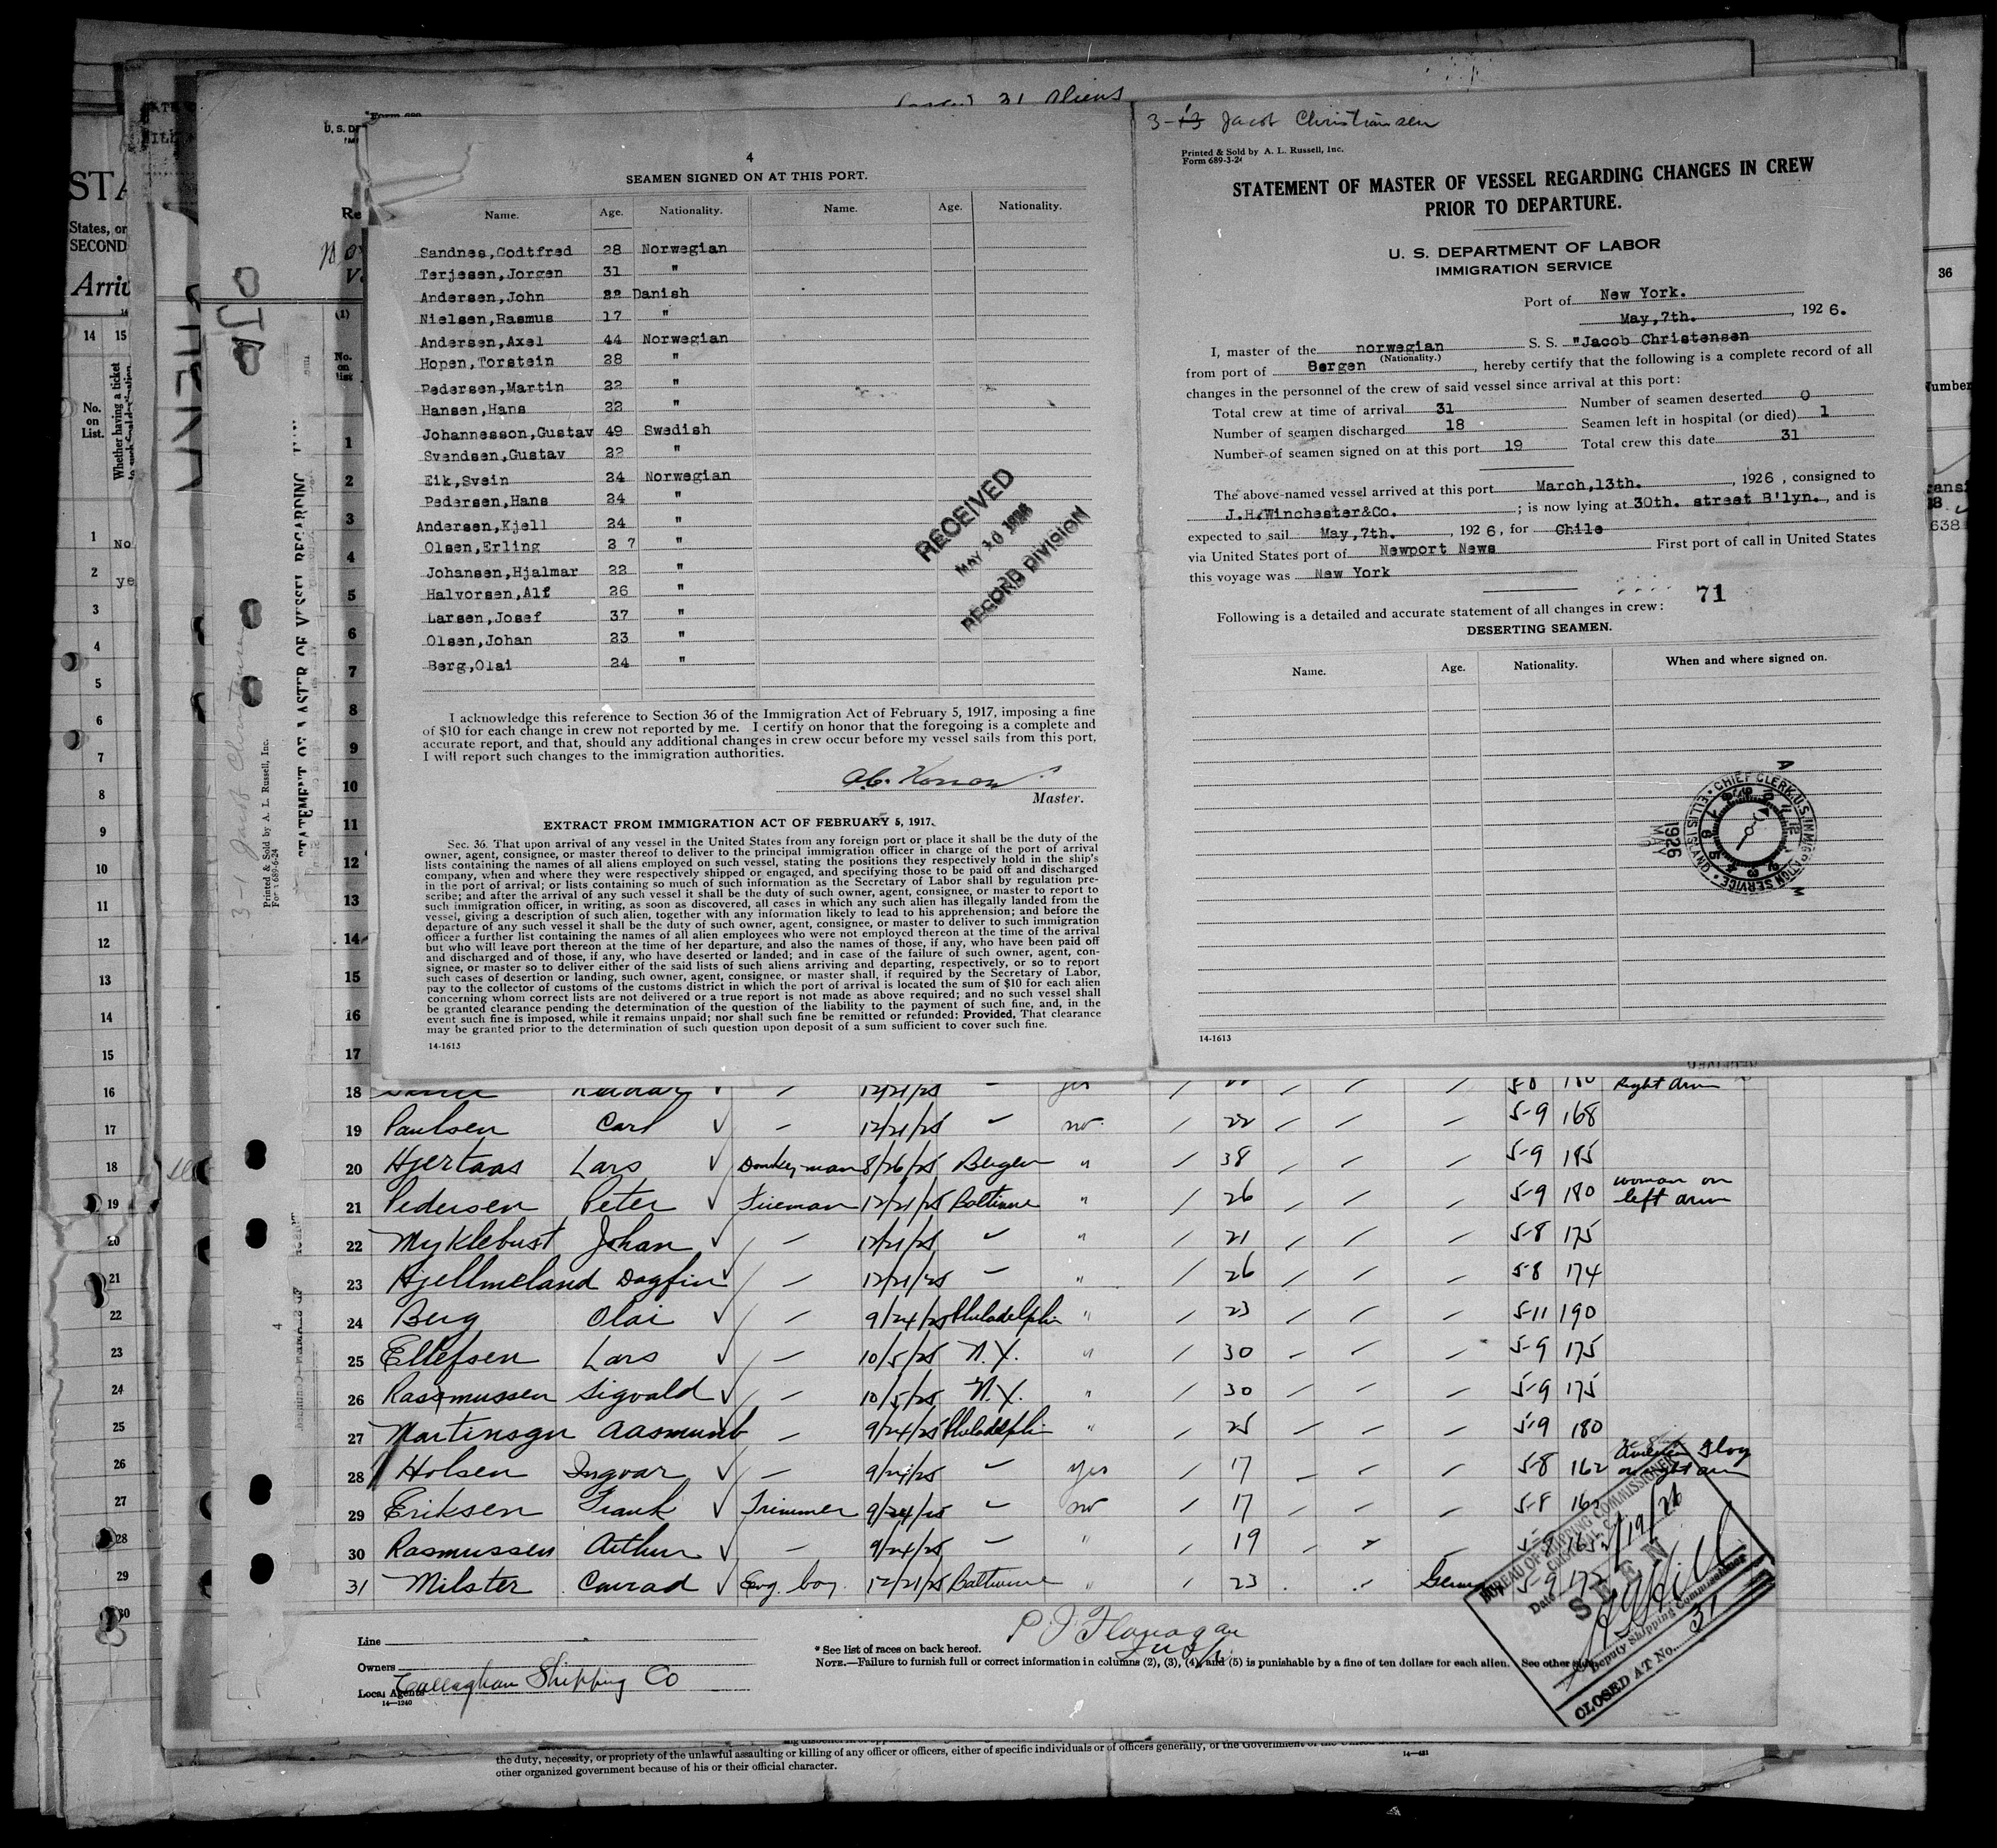 Passed 31 Aliens
4
SEAMEN SIGNED ON AT THIS PORT.
Name. Age. Nationality. Name. Age. Nationality.
Sandnes,Godtfred 28 Norwegian
Terjesen,Jorgen 31 "
Andersen,John 22 Danish
Nielsen,Rasmus 17 "
Andersen,Axel 44 Norwegian
Hopen,Torstein 28 "
Pedersen,Martin 22 "
Hansen,Hans 22 "
Johannesson,Gustav 49 Swedish
Svendsen,Gustav 22 "
Eik,Svein 24 Norwegian
Pedersen,Hans 24 "
Andersen,Kjell 24 "
Olsen,Erling 27 "
Johansen,Hjalmar 22 "
Halvorsen,Alf 26 "
Larsen,Josef 37 "
Olsen,Johan 23 "
Berg,Olai 24 "
RECEIVED
MAY 10 1926
RECORD DIVISION
I acknowledge this reference to Section 36 of the Immigration Act of February 5, 1917, imposing a fine
of $10 for each change in crew not reported by me. I certify on honor that the foregoing is a complete and
accurate report, and that, should any additional changes in crew occur before my vessel sails from this port,
I will report such changes to the immigration authorities.
Master.
EXTRACT FROM IMMIGRATION ACT OF FEBRUARY 5, 1917.
Sec. 36. That upon arrival of any vessel in the United States from any foreign port or place it shall be the duty of the
owner, agent, consignee, or master thereof to deliver to the principal immigration officer in charge of the port of arrival
lists containing the names of all aliens employed on such vessel, stating the positions they respectively hold in the ship's
company, when and where they were respectively shipped or engaged, and specifying those to be paid off and discharged
in the port of arrival; or lists containing so much of such information as the Secretary of Labor shall by regulation pre-
scribe; and after the arrival of any such vessel it shall be the duty of such owner, agent, consignee, or master to report to
such immigration officer, in writing, as soon as discovered, all cases in which any such alien has illegally landed from the
vessel, giving a description of such alien, together with any information likely to lead to his apprehension; and before the
departure of any such vessel it shall be the duty of such owner, agent, consignee, or master to deliver to such immigration
officer a further list containing the names of all alien employees who were not employed thereon at the time of the arrival
but who will leave port thereon at the time of her departure, and also the names of those, if any, who have been paid off
and discharged and of those, if any, who have deserted or landed; and in case of the failure of such owner, agent, con-
signee, or master so to deliver either of the said lists of such aliens arriving and departing, respectively, or so to report
such cases of desertion or landing, such owner, agent, consignee, or master shall, if required by the Secretary of Labor,
pay to the collector of customs of the customs district in which the port of arrival is located the sum of $10 for each alien
concerning whom correct lists are not delivered or a true report is not made as above required; and no such vessel shall
be granted clearance pending the determination of the question of the liability to the payment of such fine, and, in the
event such fine is imposed, while it remains unpaid; nor shall such fine be remitted or refunded: Provided, That clearance
may be granted prior to the determination of such question upon deposit of a sum sufficient to cover such fine.
14-1613
3-13 Jacob Christiansen
Printed & Sold by A. L. Russell, Inc.
Form 689-3-24
STATEMENT OF MASTER OF VESSEL REGARDING CHANGES IN CREW
PRIOR TO DEPARTURE.
U. S. DEPARTMENT OF LABOR
IMMIGRATION SERVICE
Port of New York.
May,7th. , 1926.
I, master of the norwegian S. S. "Jacob Christensen
(Nationality.)
from port of Bergen , hereby certify that the following is a complete record of all
changes in the personnel of the crew of said vessel since arrival at this port:
Total crew at time of arrival 31 Number of seamen deserted 0
Number of seamen discharged 18 Seamen left in hospital (or died) 1
Number of seamen signed on at this port 19 Total crew this date 31
The above-named vessel arrived at this port March,13th. , 1926 , consigned to
J.H.Winchester&Co. ; is now lying at 30th. street B'lyn. , and is
expected to sail May,7th. , 1926, for Chile
via United States port of Newport News First port of call in United States
this voyage was New York
71
Following is a detailed and accurate statement of all changes in crew:
DESERTING SEAMEN.
Name. Age. Nationality. When and where signed on.
CHIEF CLERK U.S. IMMIGRATION SERVICE ELLIS ISLAND
MAY 1926
14-1613
18 12/21/25 " yes 5-8 180 Right arm
19 Paulsen Carl 12/21/25 " no 22 5-9 168
20 Hjertaas Lars Donkey-man 8/26/25 Bergen " 38 5-9 185
21 Pedersen Peter Fireman 12/21/25 Baltimore " 26 5-9 180 woman on left arm
22 Myklebust Johan 12/21/25 " " 21 5-8 175
23 Hjellmeland Dagfin 12/21/25 " " 26 5-8 174
24 Berg Olai 9/24/25 Philadelphia " 23 5-11 190
25 Ellefsen Lars 10/5/25 N.Y. " 30 5-9 175
26 Rasmussen Sigvald 10/5/25 N.Y. " 30 5-9 175
27 Martinsen Aasmund 9/24/25 Philadelphia " 25 5-9 180
28 Holsen Ingvar 9/24/25 " yes 17 5-8 162 American Flag on right arm
29 Eriksen Frank Trimmer 9/24/25 " no 17 5-8
30 Rasmussen Arthur 9/24/25 " " 19
31 Milster Conrad Eng. boy. 12/21/25 Baltimore " 23 5-9 172
BUREAU OF SHIPPING COMMISSIONER
Date
SEEN
Deputy Shipping Commissioner
CLOSED AT No. 31
Line
Owners
Local Agents Callaghan Shipping Co
14-1240
P J Flanagan
* See list of races on back hereof.
NOTE.—Failure to furnish full or correct information in columns (2), (3), (4), and (5) is punishable by a fine of ten dollars for each alien. See other side.
the duty, necessity, or propriety of the unlawful assaulting or killing of any officer or officers, either of specific individuals or of officers generally, of the Government of the United
other organized government because of his or their official character.
14-481